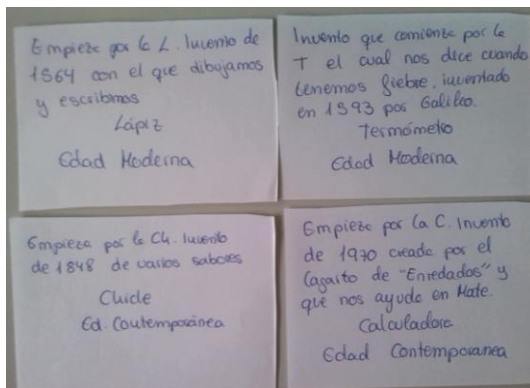 Empieza por la L. Invento de
1564 con el que dibujamos
y escribimos
Lápiz
Edad Moderna
Invento que comienza por la
T el cual nos dice cuando
tenemos fiebre, inventado
en 1593 por Galileo.
Termómetro
Edad Moderna
Empieza por la Ch. Invento
de 1848 de varios sabores
Chicle
Ed. Contemporánea
Empieza por la C. Invento
de 1970 creado por el
lagarto de "Enredados" y
que nos ayuda en Mate.
Calculadora
Edad Contemporanea